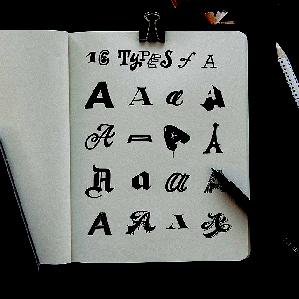 16 TYPES of A
A A a A
A A A A
A a a A
A A A A